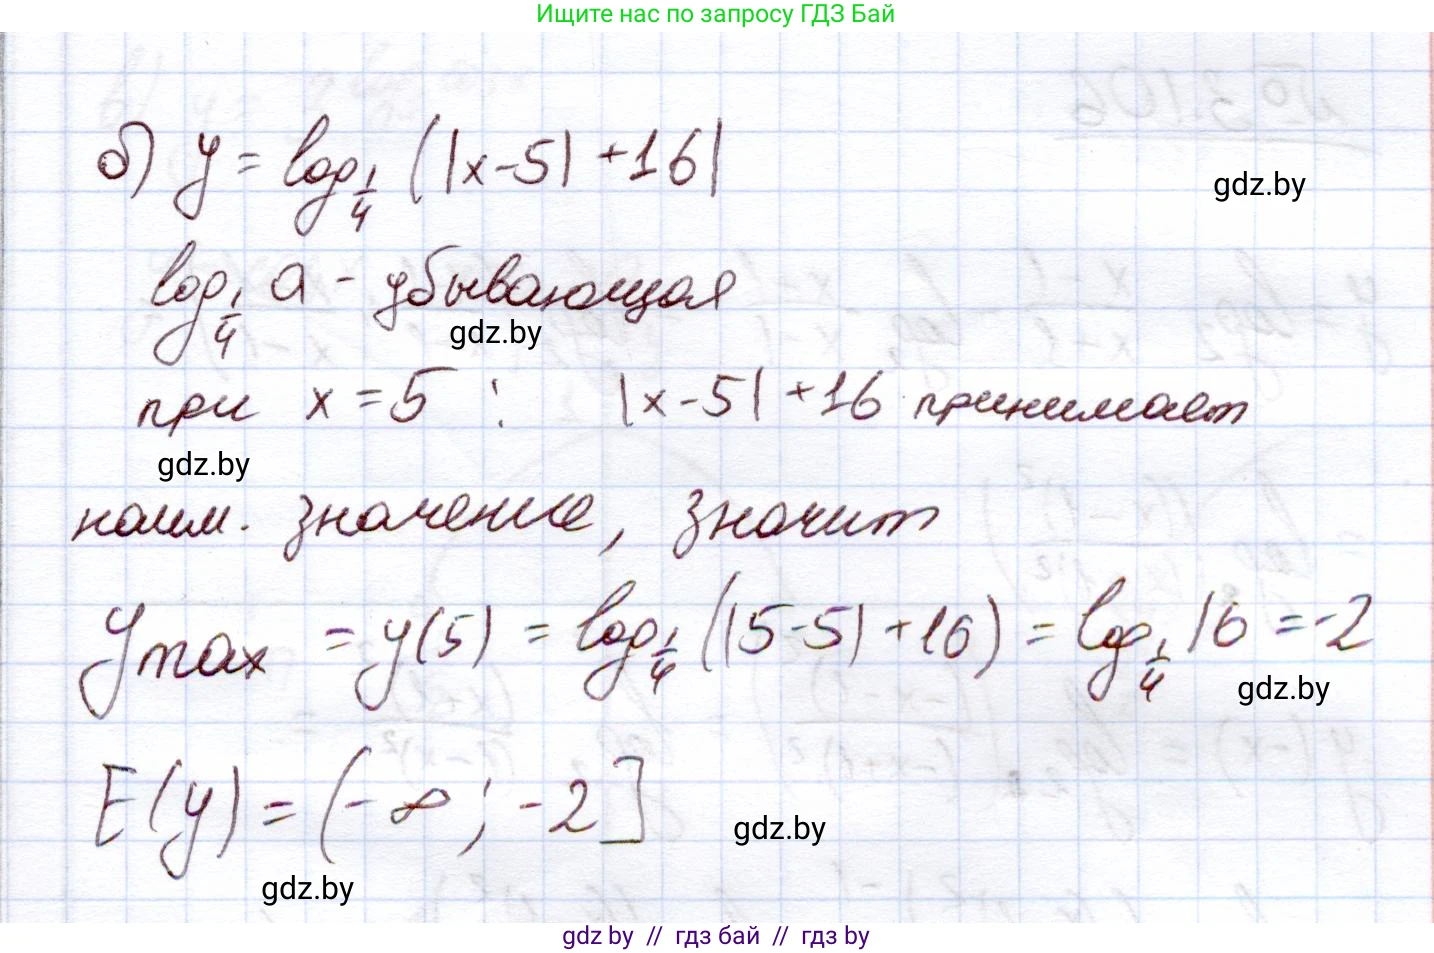 Ищите нас по запросу ГДЗ Бай
б) y = log_{1/4} (|x-5| +16|
gdz.by
log_{1/4} a - убывающая
gdz.by
при x = 5 : |x-5| +16 принимает
gdz.by
наим. значение, значит
y_{max} = y(5) = log_{1/4} (|5-5| +16) = log_{1/4} 16 = -2
gdz.by
E(y) = (-∞; -2]
gdz.by
gdz.by
gdz by // гдз бай // гдз by